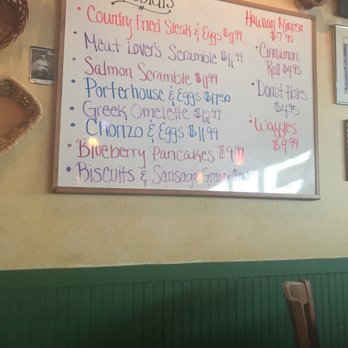 Specials
Country Fried Steak & Eggs $11.99
Meat Lover's Scramble $11.99
Salmon Scramble $11.99
Porterhouse & Eggs $17.50
Greek Omelette
Chorizo & Eggs $11.99
Blueberry Pancakes $9.99
Biscuits & Sausage Gravy
Hawaiian Mimosa
$7.95
Cinnamon
Roll $4.95
Donut Holes
$4.95
Waffles
$9.99